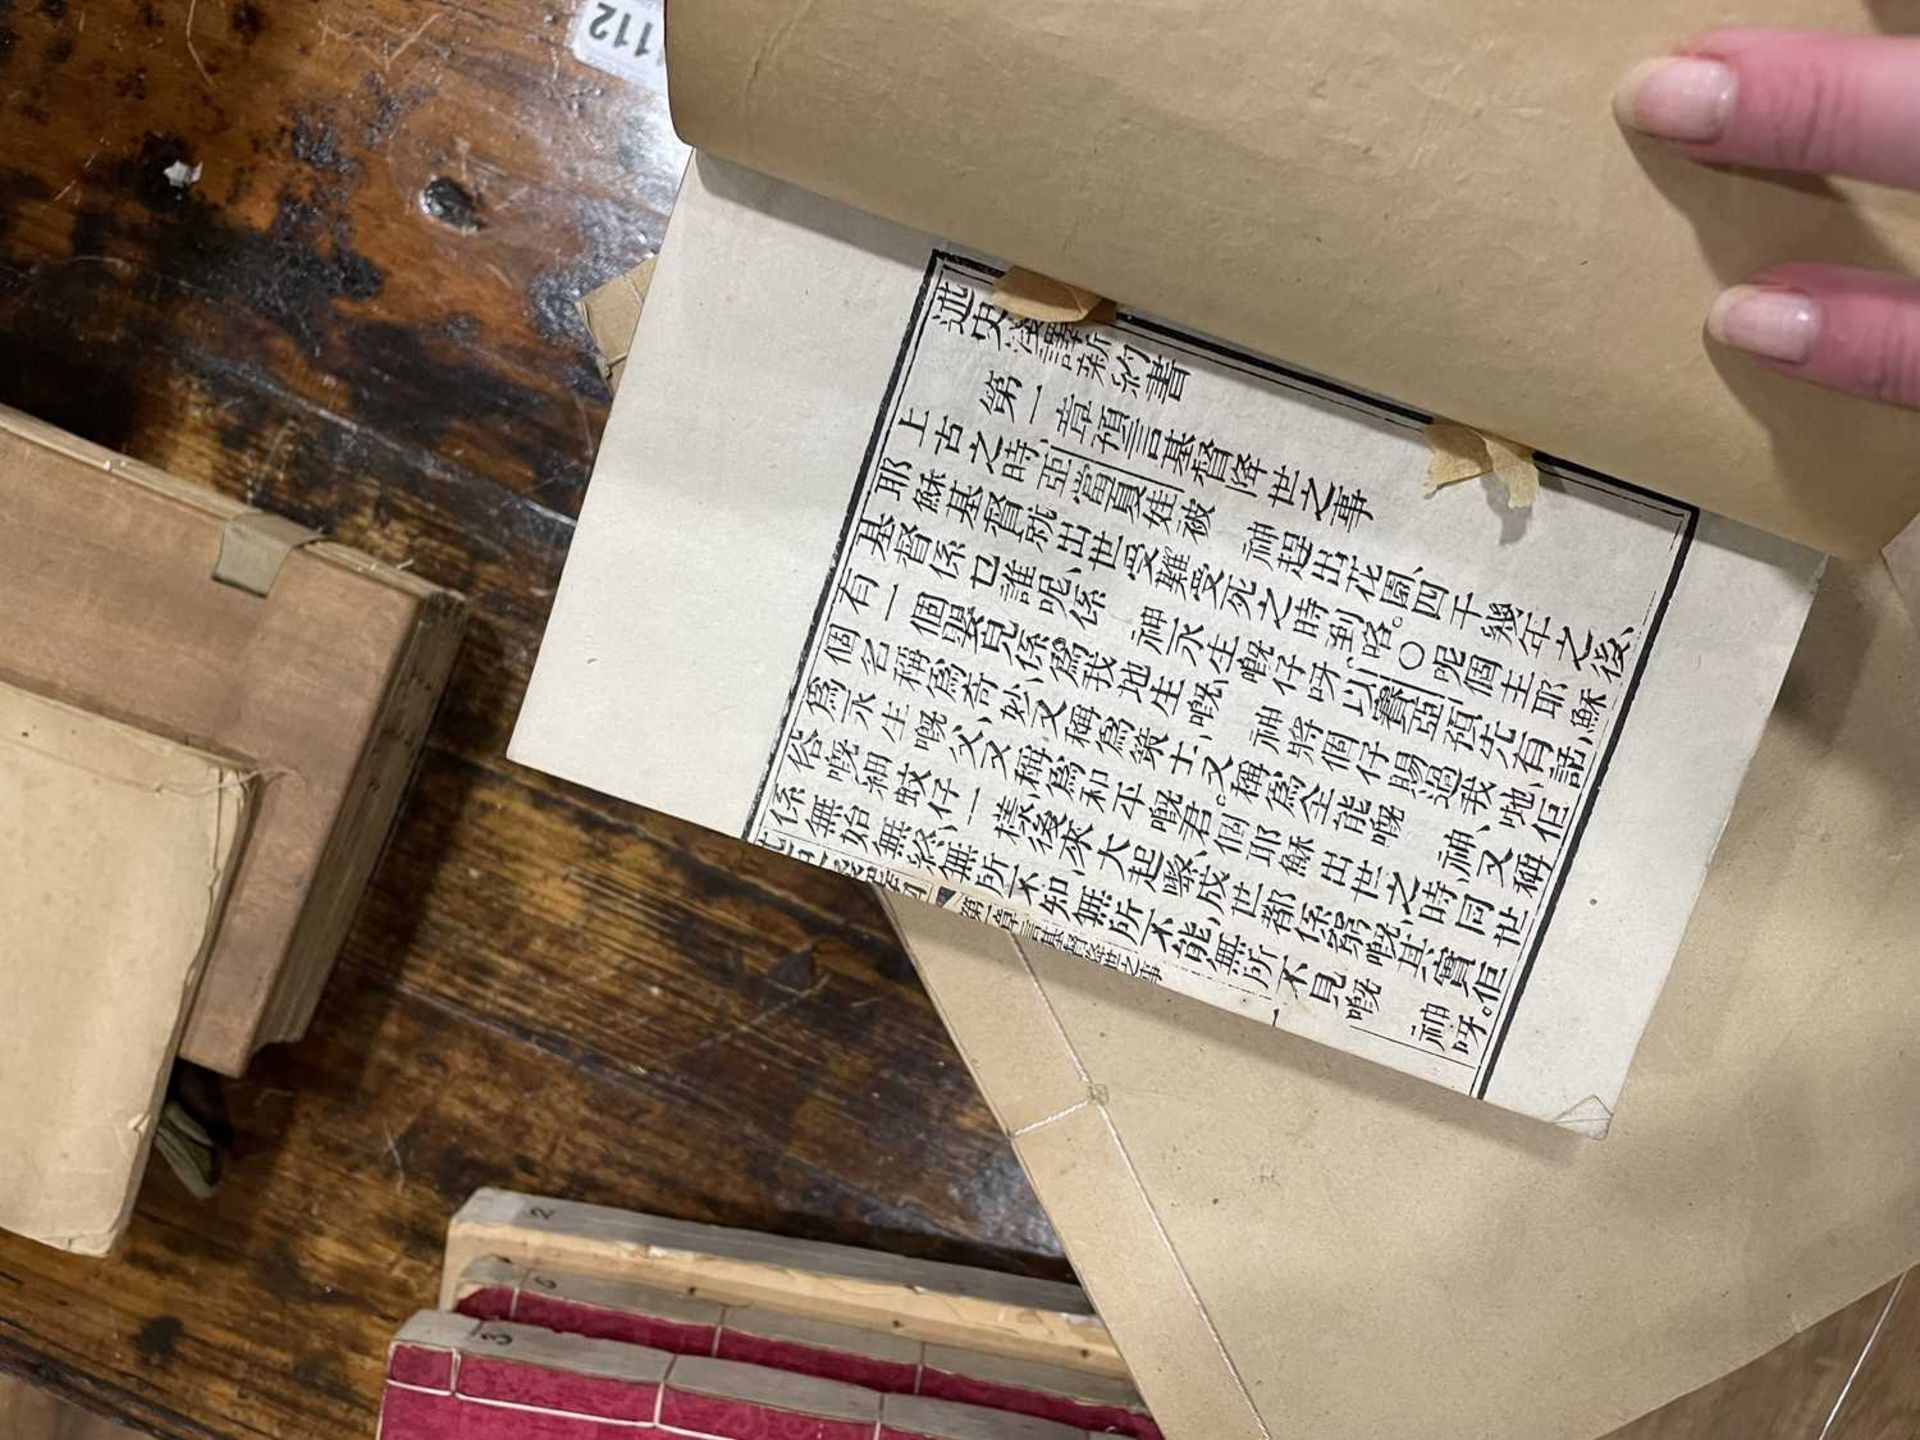 述史淺譯新約書
第一章預言基督降世之事
上古之時、亞當夏娃被　神趕出花園、四千幾年之後、
耶穌基督就出世受難受死之時到咯。〇呢個主耶穌
基督係乜誰呢、係　神永生嘅仔呀、以賽亞預先有話、
有一個嬰兒係爲我地生嘅、　神將個仔賜過我地、佢
個名稱爲奇妙、又稱爲策士、又稱爲全能嘅　神、又稱
爲永生嘅父、又稱爲和平嘅君。個耶穌出世之時、同世
俗嘅細蚊仔一樣、後來大起嚟、成世都係窮嘅、其實佢
係無始無終、無所不知、無所不能、無所不見嘅　神呀。佢
第一章言基督降世之事　一
112
2
6
3